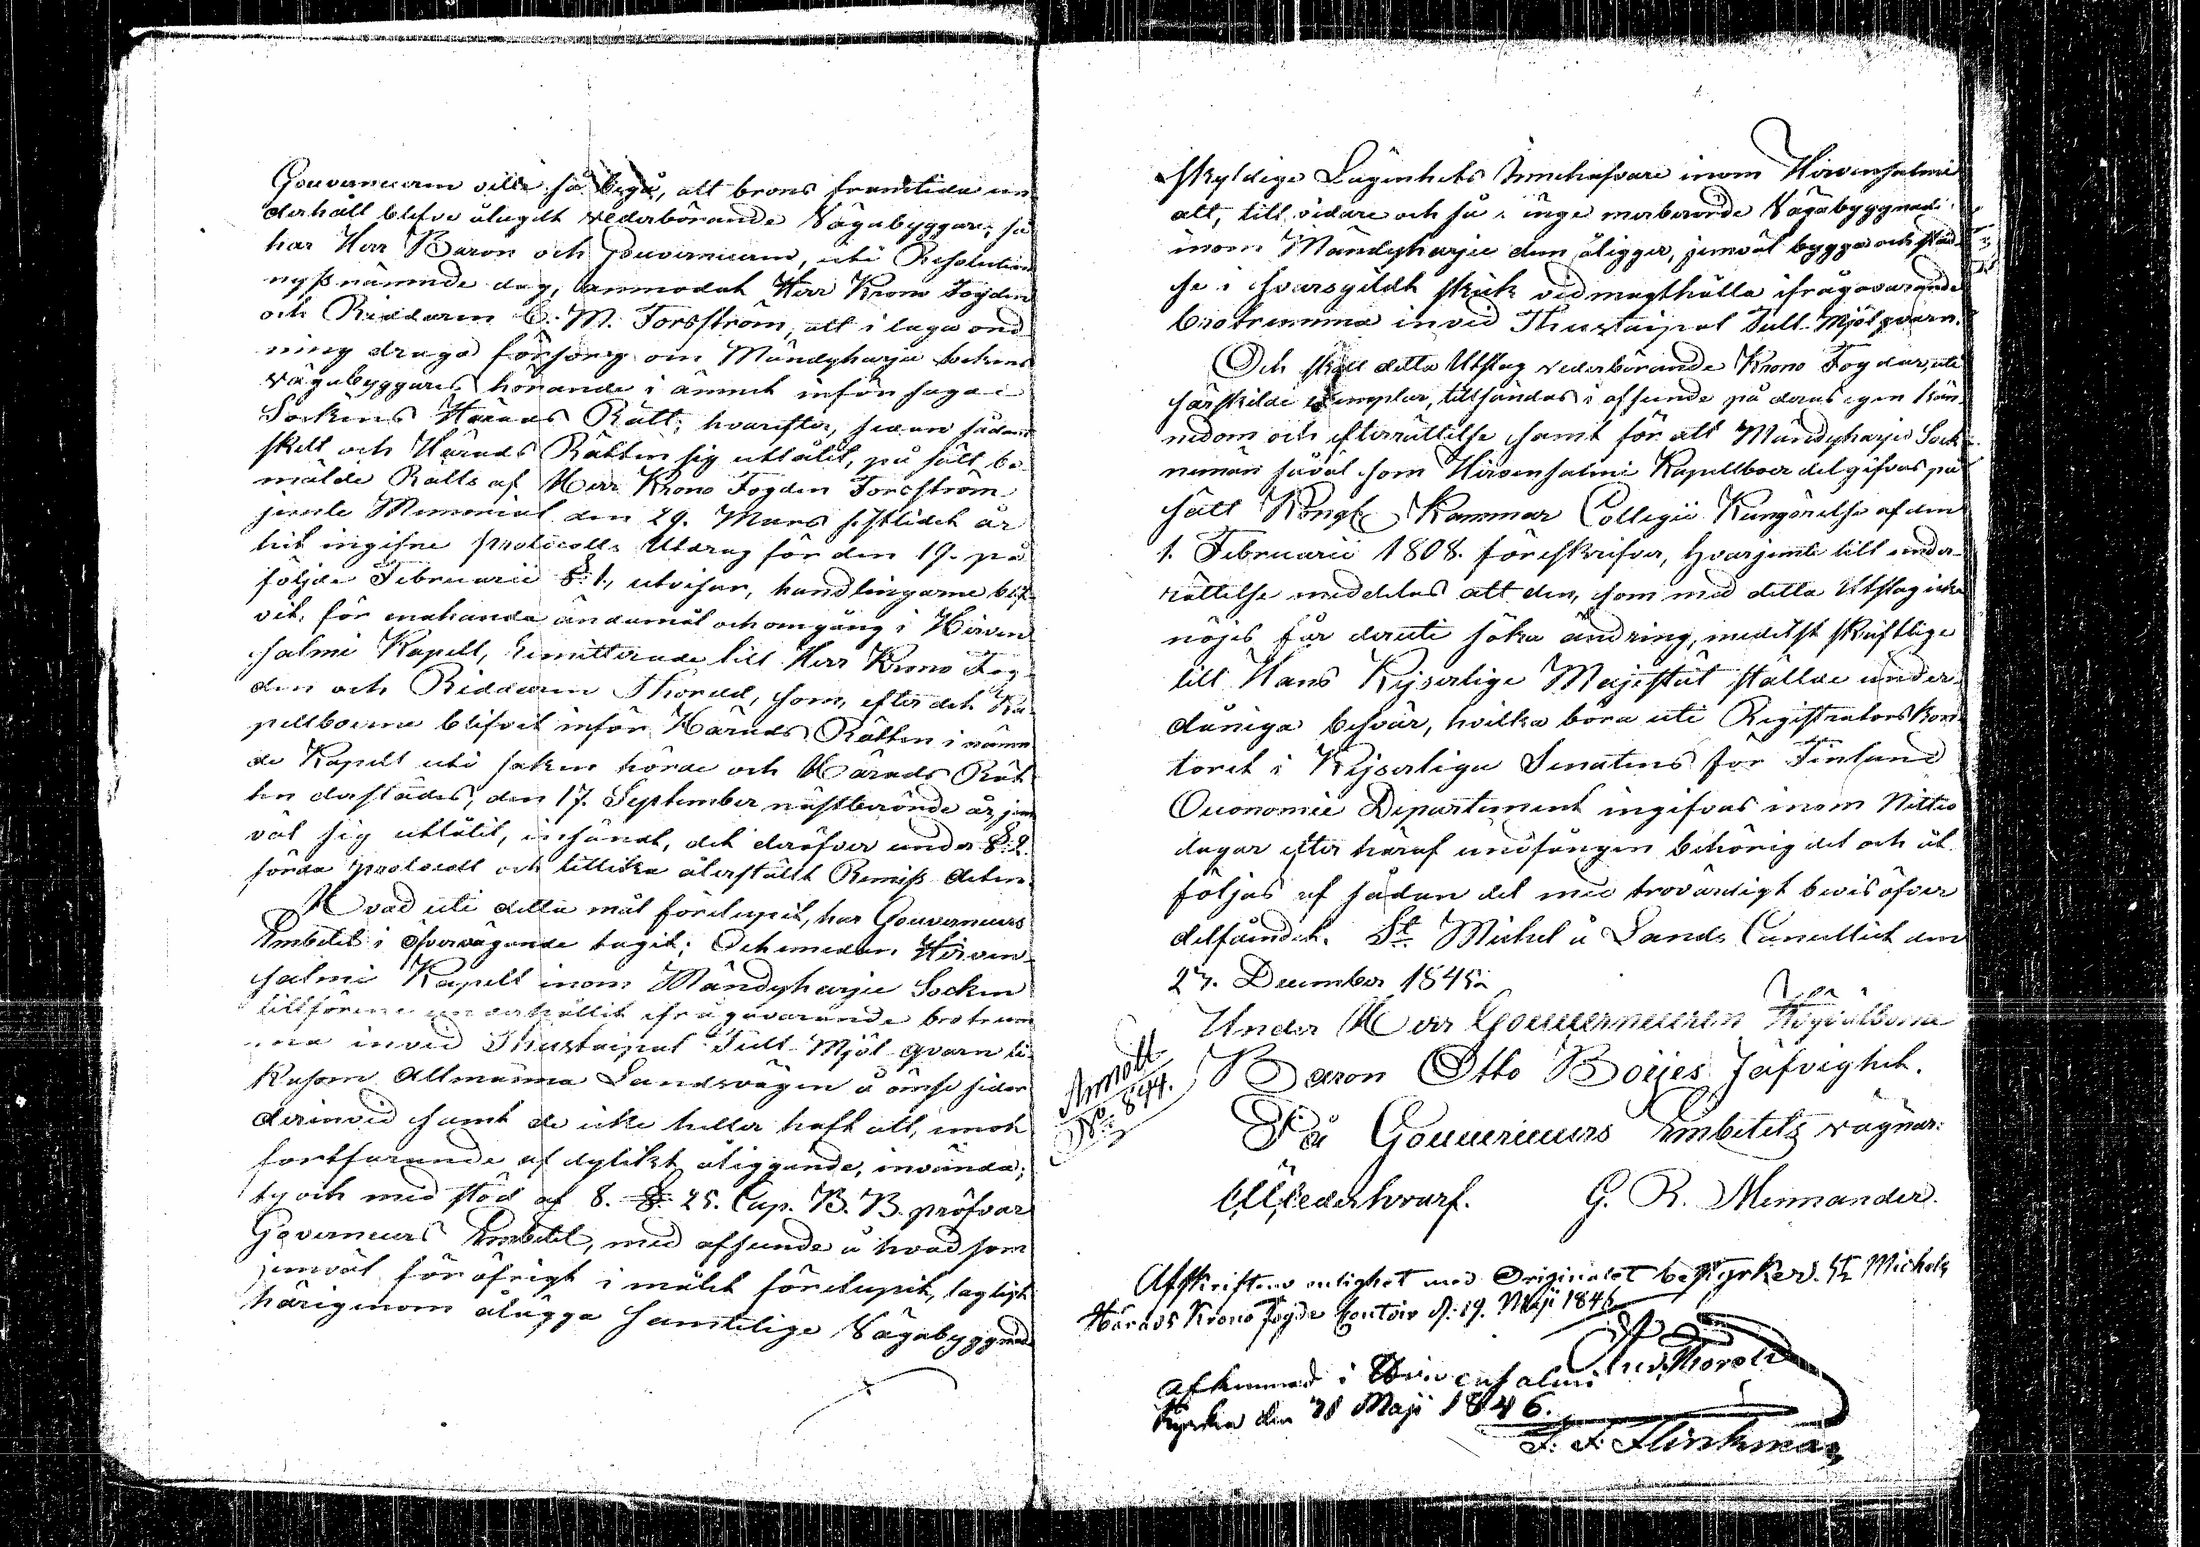 Gouverneuren ville så laga, att brons framtida un
derhåll blefve ålagdt vederbörande Vägabyggare; så
har Herr Baron och Gouverneuren, uti Resolution
nyssnämnde dag, anmodat Herr Krono Fogden
och Riddaren C. M. Forsström, att i laga ord
ning draga försorg om Mändyharju Sockens
Vägabyggares hörande i ämnet inför saga
Sockens Härads Rätt; hvarefter, sedan sådant
skett och Härads Rätten sig utlåtit, på sätt be
mälde Rätts af Herr Krono Fogden Forsström
jemte Memorial den 29. Mars sistlidet år
hit ingifne protocolls Utdrag för den 19. på
följde Februarii §. 1., utvisar, handlingarne blif
vit, för enahanda ändamål och omgång i Hirven
salmi Kapell, remitterade till Herr Krono Fog
den och Riddaren Thoreld, som, efter det Ka
pellboerne blifvit inför Härads Rätten i nämn
de Kapell uti saken hörde och Härads Rät
ten derstädes, den 17. September nästberörde år, jem
väl sig utlåtit, insändt, det deröfver under §. 2.
förda protocoll och tillika återställt Remiss acten.
Hvad uti detta mål förelupit, har Gouverneurs
Embetet i öfvervägande tagit; Och emedan Hirven
salmi Kapell inom Mändyharju Socken
tillförene underhållit ifrågavarande brotrum
ma invid Thustaipal Tull Mjöl qvarn li
kasom Allmänna Landsvägen å ömse sidor
derinvid samt de icke heller haft att, emot
fortfarande af dylikt åliggande, invända;
ty och med stöd af 8. §. 25. Cap. B. B. pröfvar
Gouverneurs Embetet, med afseende å hvad som
jemväl föröfrigt i målet förelupit, lagligt
härigenom ålägga samtelige Vägabyggnads
skyldige Lägenhets Innehafvare inom Hirvensalmi
att, till vidare och så länge merberörde Vägabyggnad
inom Mändyharju dem åligger, jemväl bygga och städ
se i svarsgildt skick vidmagthålla ifrågavarande
brotrumma invid Thustaipal Tull-Mjölqvarn.
Och skall detta Utslag vederbörande Krono Fogdar, uti
särskilde exemplar, tillsändas i afseende på deras egen kän
nedom och efterrättelse samt för att Mändyharju Sock
nemän såväl som Hirvensalmi Kapellboer delgifvas på
sätt Kongl. Kammar Collegii Kungörelse af den
1. Februarii 1808. föreskrifver, hvarjemte till under-
rättelse meddelas att den, som med detta Utslag icke
nöjes får deruti söka ändring, medelst skriftlige
till Hans Kejserlige Majestät ställde under-
dåniga besvär, hvilka böra uti Registrators kon-
toret i Kejserliga Senatens för Finland
Oeconomie Departement ingifvas inom Nittio
dagar efter häraf undfången behörig del och åt
följas af sådan del med trovärdigt bevis öfver
delfåendet. St. Michel å Lands Cancelliet den
27. December 1845.
Under Herr Gouverneuren Högvälborne
Baron Otto Boijes jäfvighet.
På Gouverneurs Embetets vägnar:
Cederhvarf. G. R. Mennander.
Anmält
No: 844.
Afskriftens enlighet med Originalet bestyrker. St. Michels
Härads Krono Fogde Contoir d: 19. Maji 1846
And. Thoreld
afkunnad i Hirvensalmi
Kyrka den 31 Maji 1846.
F. F. Flinkman